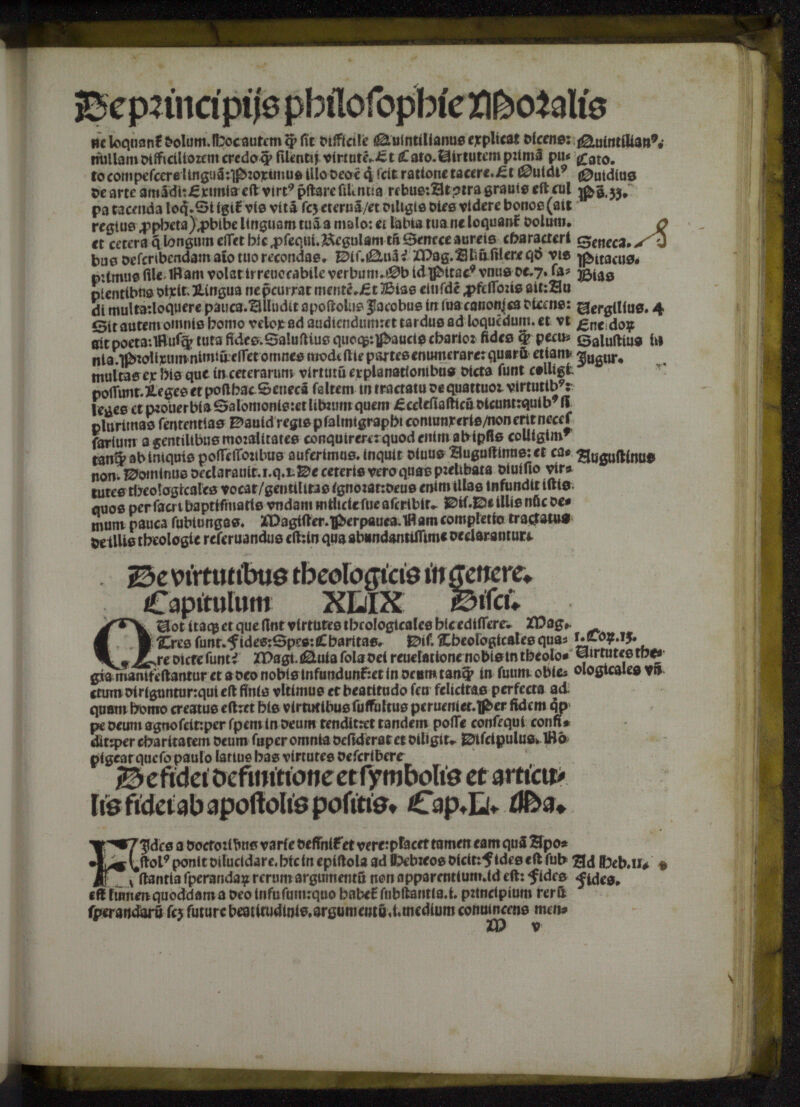 De principijs philosophie Moralis
ne loquant̃ dolum. Hoc autem ꝙ sit difficile Quintilianus explicat dicens: Quintilianꝰ.
nullam difficiliorem credo ꝙ silentij virtutẽ. Et Cato. Virtutem primã pu⸗ Cato.
to compescere linguã: Proximus ille deo ẽ q̇ scit ratione tacere. Et Ouidiꝰ Ouidius
de arte amãdi: Eximia est virtꝰ p̃stare silentia rebus: At ↄtra grauis est cul p̃s. 33.
pa tacenda loq̇. Si igit̃ vis vitã scꝫ eternã/et diligis dies videre bonos (ait
regius ꝓpheta) ꝓhibe linguam tuã a malo: et labia tua ne loquant̃ dolum.
et cetera q̃ longum esset hic ꝓsequi. Regulam tñ Senece aureis characteri Seneca.
bus describendam aĩo tuo recondas. Dis. Quã? Mag. Aliũ silere qđ vis Pitacus.
primus sile. Nam volat irreuocabile verbum. Ob id Pitacꝰ vnus de .7. sa⸗ Bias
pientibus dixit. Lingua ne p̃currat mentẽ. Et Bias eiusdẽ ꝓfessionis ait: Au
di multa: loquere pauca. Alludit apostolus Jacobus in sua canonica dicens: Vergilius. 4
Sit autem omnis homo velox ad audiendum: et tardus ad loquẽdum. et vt Eneidoꝝ
ait poeta: Nusq̃ tuta fides. Salustius quoqꝫ: Paucis charior fides q̃ pecu⸗ Salustius in
nia. Prolixum nimiũ esset omnes modestie partes enumerare: quarũ etiam Jugur.
multas ex his que in ceterarum virtutũ explanationibus dicta sunt colligi
possunt. Leges et posthac Senecã saltem in tractatu de quattuor virtutibꝰ:
leges et prouerbia Salomonis: et librum quem Ecclesiasticũ dicunt: quibꝰ si
plurimas sententias Dauid regis psalmigraphi coniunxeris/non erit neces
sarium a gentilibus moralitates conquirere: quod enim ab ipsis colligimꝰ
tanq̃ ab iniquis possessoribus auferimus. inquit diuus Augustinus: et ca⸗ Augustinus
non. Dominus declarauit. 1. q. 1. De ceteris vero quas prelibata diuisio vir⸗
tutes theologicales vocat/gentilitas ignorat: deus enim illas infundit istis
quos per sacri baptismatis vndam militie sue ascribit. Dis. De illis nũc de⸗
mum pauca subiungas. Magister. Perpauca. Nam completio tractatus
de illis theologie reseruandus est: in qua abundantissime declarantur.
De virtutibus theologicis in genere.
Capitulum XLIX Disci.
QUot itaqꝫ et que sint virtutes theologicales hic edissere. Mag.
Tres sunt. Fides: Spes: Charitas. Dis. Theologicales qua⸗ 1. Coꝝ. 13.
re dicte sunt? Magi. Quia sola dei reuelatione nobis in theolo⸗ Virtutes the⸗
gia manifestantur et a deo nobis infundunt̃: et in deum tanq̃ in suum obie⸗ ologicales vñ
ctum diriguntur: qui est finis vltimus et beatitudo seu felicitas perfecta ad
quam homo creatus est: et his virtutibus suffultus perueniet. Per fidem q̃p
pe deum agnoscit: per spem in deum tendit: et tandem posse consequi confi⸗
dit: per charitatem deum super omnia desiderat et diligit. Discipulus. Nõ
pigeat queso paulo latius has virtutes describere
De fidei definitione et symbolis et articu⸗
lis fidei ab apostolis positis. Cap. L. Ma.
FIdes a doctoribus varie deffinit̃ et vere: placet tamen eam quã Apo⸗
stolꝰ ponit dilucidare. hic in epistola ad Hebreos dicit: Fides est sub⸗ Ad Heb. 11.
stantia sperandaꝝ rerum argumentũ non apparentium. id est: Fides Fides.
est lumen quoddam a deo infusum: quo habet̃ substantia .i. principium rerũ
sperandarũ scꝫ future beatitudinis. argumentũ .i. medium conuincens men⸗
M v